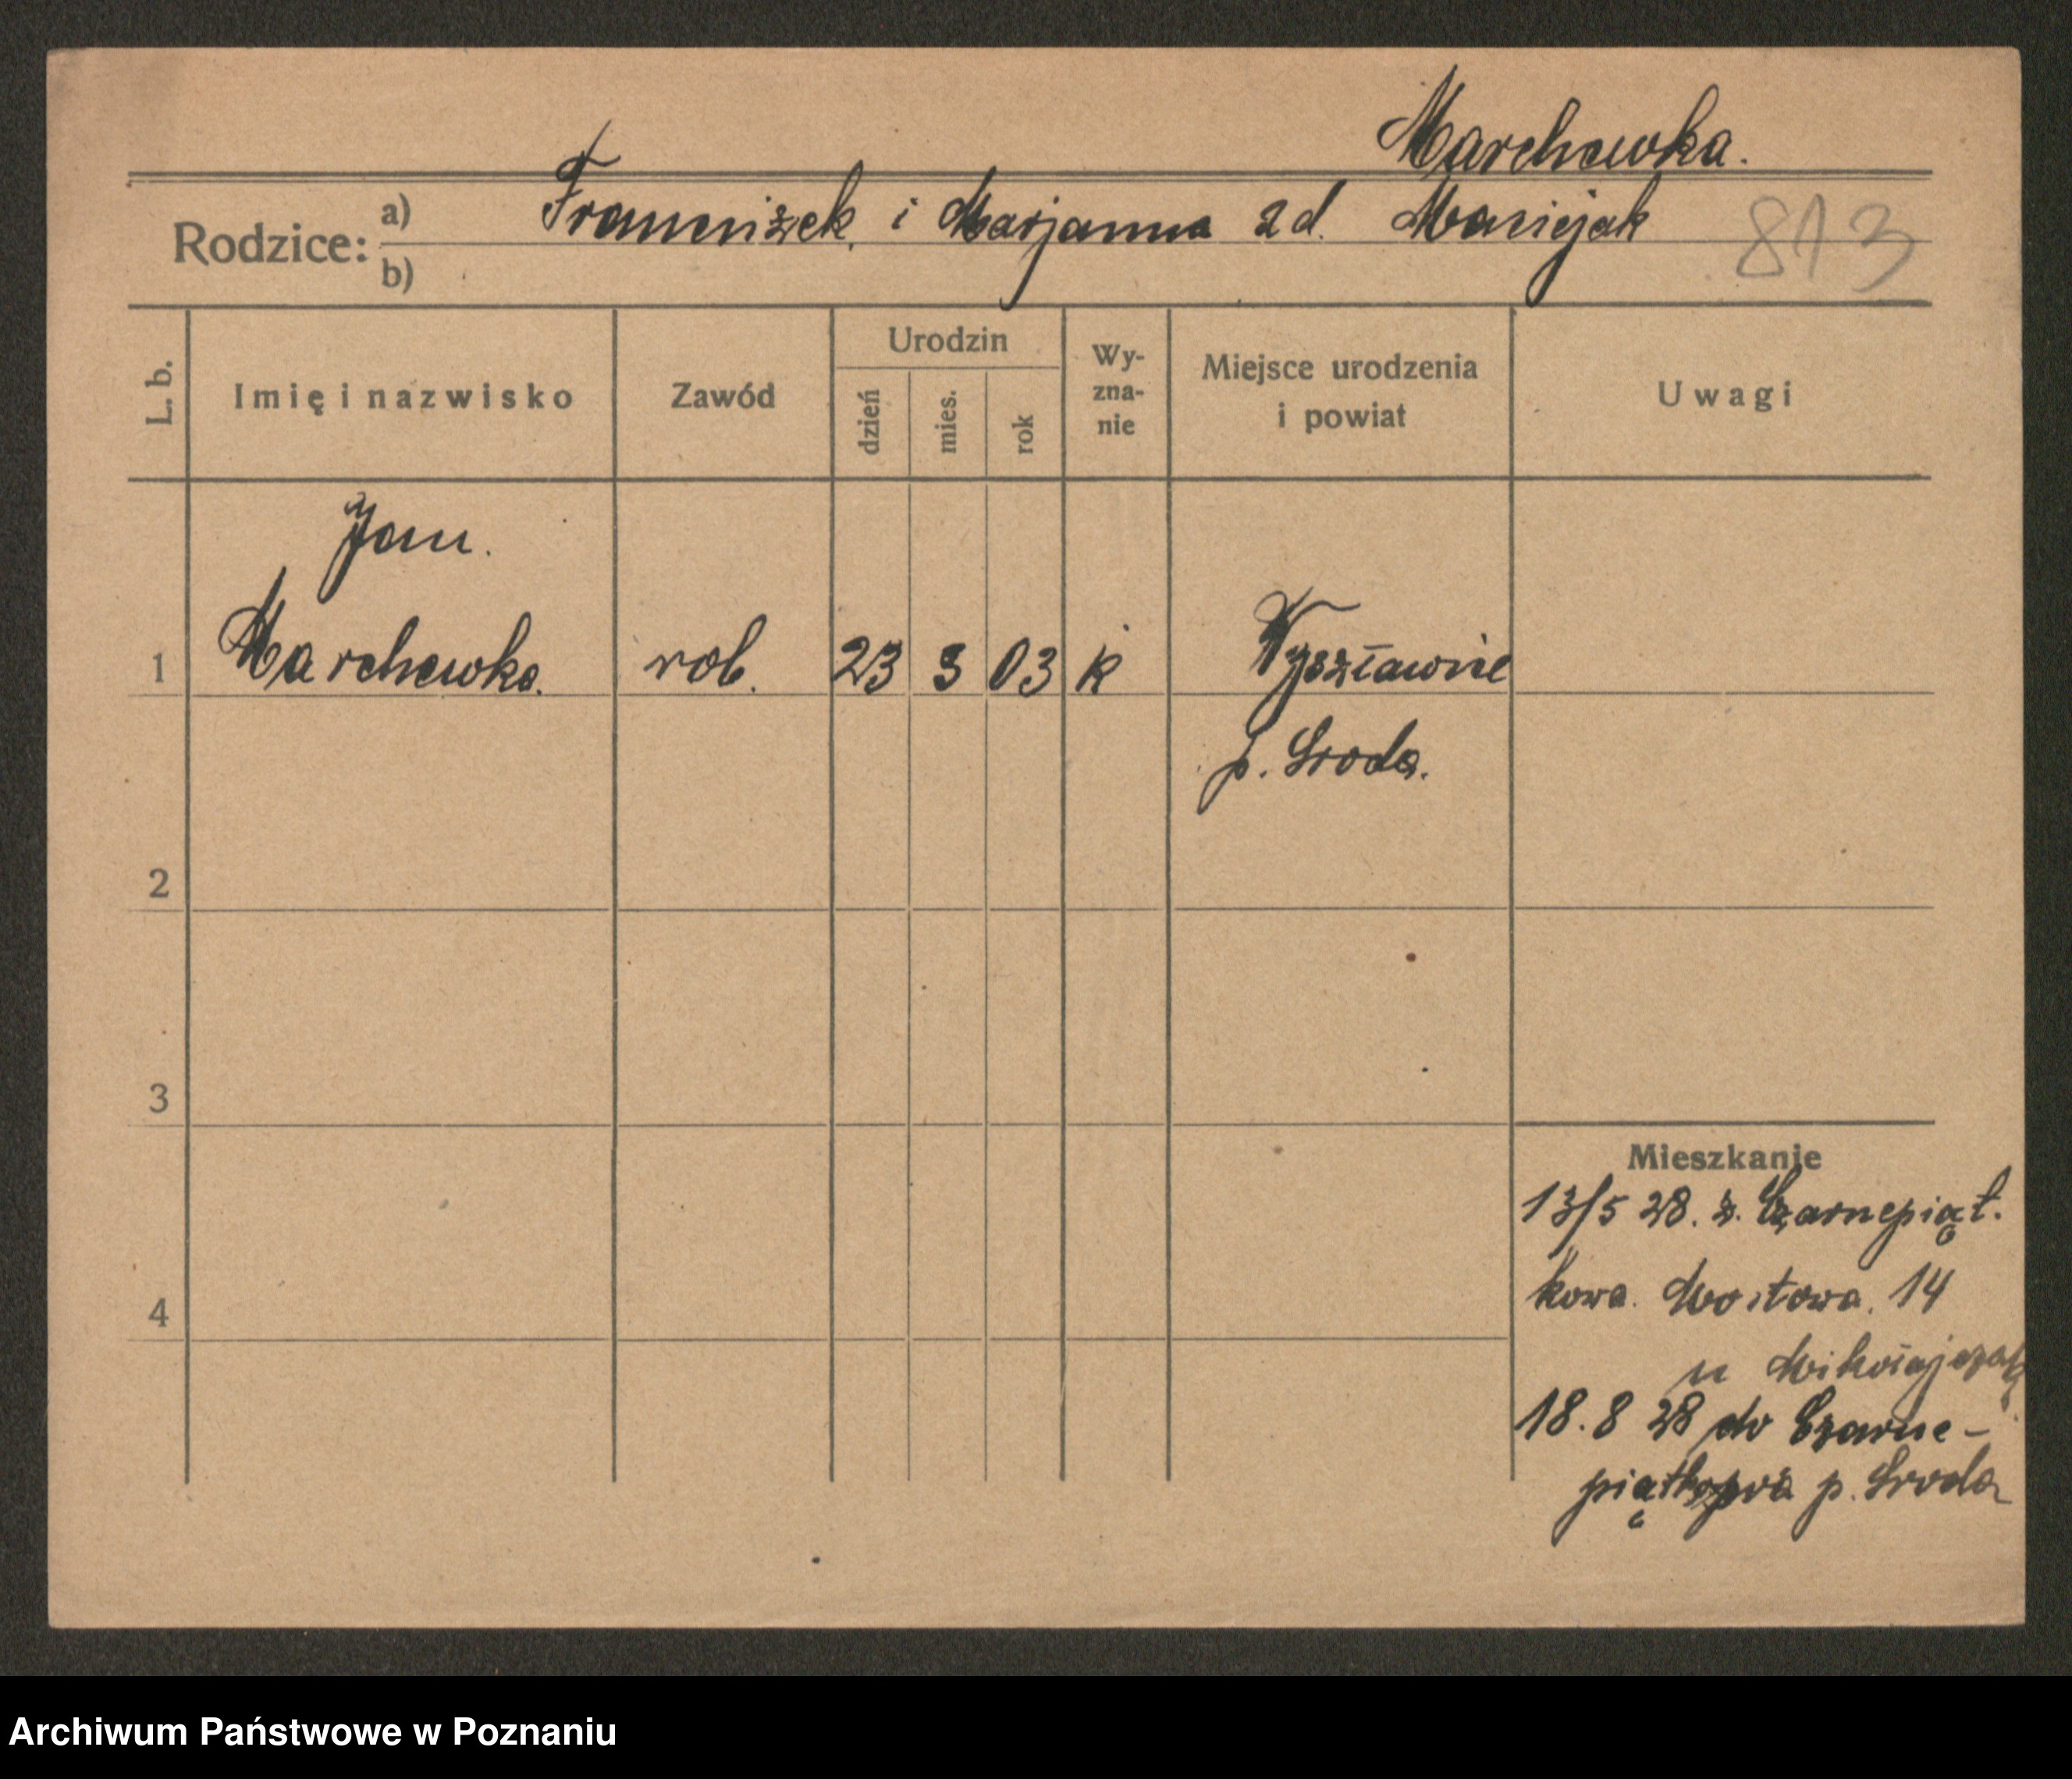 Marchewka.
Rodzice: a) Franciszek i Marjanna zd. Maciejak 813
b)
L. b. Imię i nazwisko Zawód Urodzin dzień mies. rok Wy-zna-nie Miejsce urodzenia i powiat Uwagi
Jan.
1 Marchewka. rob. 23 3 03 k Wyszławice
p. Sroda.
2
3
Mieszkanie
13/5 28. z. Czarnepiąt.
kowa. Mostowa. 14
4
u Mikołajczak
18.8 28 do Czarne-
piątkowa p. Sroda
Archiwum Państwowe w Poznaniu